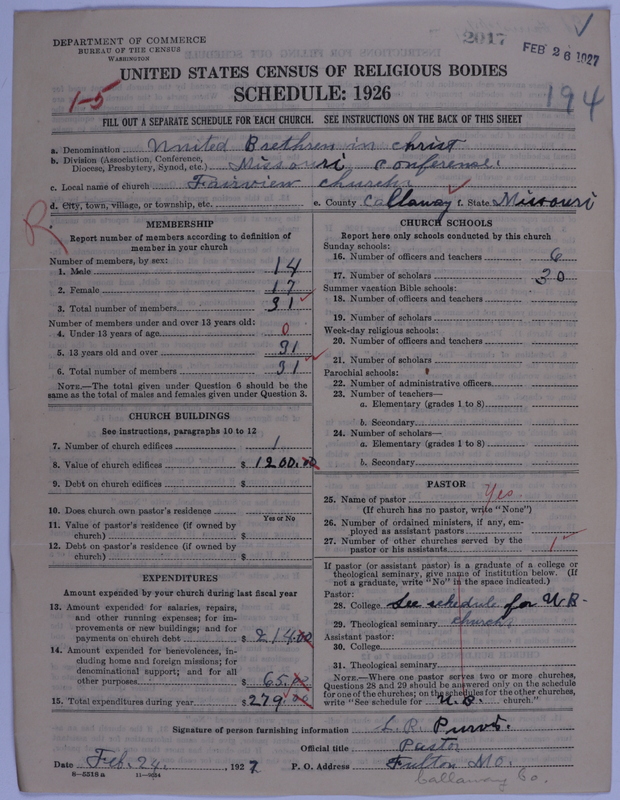 DEPARTMENT OF COMMERCE
BUREAU OF THE CENSUS
WASHINGTON
2017
FEB 26 1927
UNITED STATES CENSUS OF RELIGIOUS BODIES
SCHEDULE: 1926
1-5
194
FILL OUT A SEPARATE SCHEDULE FOR EACH CHURCH. SEE INSTRUCTIONS ON THE BACK OF THIS SHEET
a. Denomination United Brethren in Christ
b. Division (Association, Conference, Diocese, Presbytery, Synod, etc.) Missouri Conference.
c. Local name of church Fairview Church
d. City, town, village, or township, etc. e. County Callaway f. State Missouri
R
MEMBERSHIP
Report number of members according to definition of
member in your church
Number of members, by sex:
1. Male 14
2. Female 17
3. Total number of members 31
Number of members under and over 13 years old:
4. Under 13 years of age 0
5. 13 years old and over 31
6. Total number of members 31
NOTE.—The total given under Question 6 should be the
same as the total of males and females given under Question 3.
CHURCH BUILDINGS
See instructions, paragraphs 10 to 12
7. Number of church edifices 1
8. Value of church edifices $ 1200.00
9. Debt on church edifices $
10. Does church own pastor's residence
Yes or No
11. Value of pastor's residence (if owned by
church) $
12. Debt on pastor's residence (if owned by
church) $
EXPENDITURES
Amount expended by your church during last fiscal year
13. Amount expended for salaries, repairs,
and other running expenses; for im-
provements or new buildings; and for
payments on church debt $ 214.00
14. Amount expended for benevolences, in-
cluding home and foreign missions; for
denominational support; and for all
other purposes $ 65.00
15. Total expenditures during year $ 279.00
CHURCH SCHOOLS
Report here only schools conducted by this church
Sunday schools:
16. Number of officers and teachers 6
17. Number of scholars 30
Summer vacation Bible schools:
18. Number of officers and teachers
19. Number of scholars
Week-day religious schools:
20. Number of officers and teachers
21. Number of scholars
Parochial schools:
22. Number of administrative officers
23. Number of teachers—
a. Elementary (grades 1 to 8)
b. Secondary
24. Number of scholars—
a. Elementary (grades 1 to 8)
b. Secondary
PASTOR
25. Name of pastor Yes
(If church has no pastor, write "None")
26. Number of ordained ministers, if any, em-
ployed as assistant pastors
27. Number of other churches served by the
pastor or his assistants 1
If pastor (or assistant pastor) is a graduate of a college or
theological seminary, give name of institution below. (If
not a graduate, write "No" in the space indicated.)
Pastor:
28. College See schedule for U.B.
29. Theological seminary church.
Assistant pastor:
30. College
31. Theological seminary
NOTE.—Where one pastor serves two or more churches,
Questions 28 and 29 should be answered only on the schedule
for one of the churches; on the schedules for the other churches,
write "See schedule for U.B. church."
Signature of person furnishing information
Official title Pastor
Date Feb. 24. 1927 P. O. Address Fulton Mo.
Callaway Co.
8-5518 a 11-9024